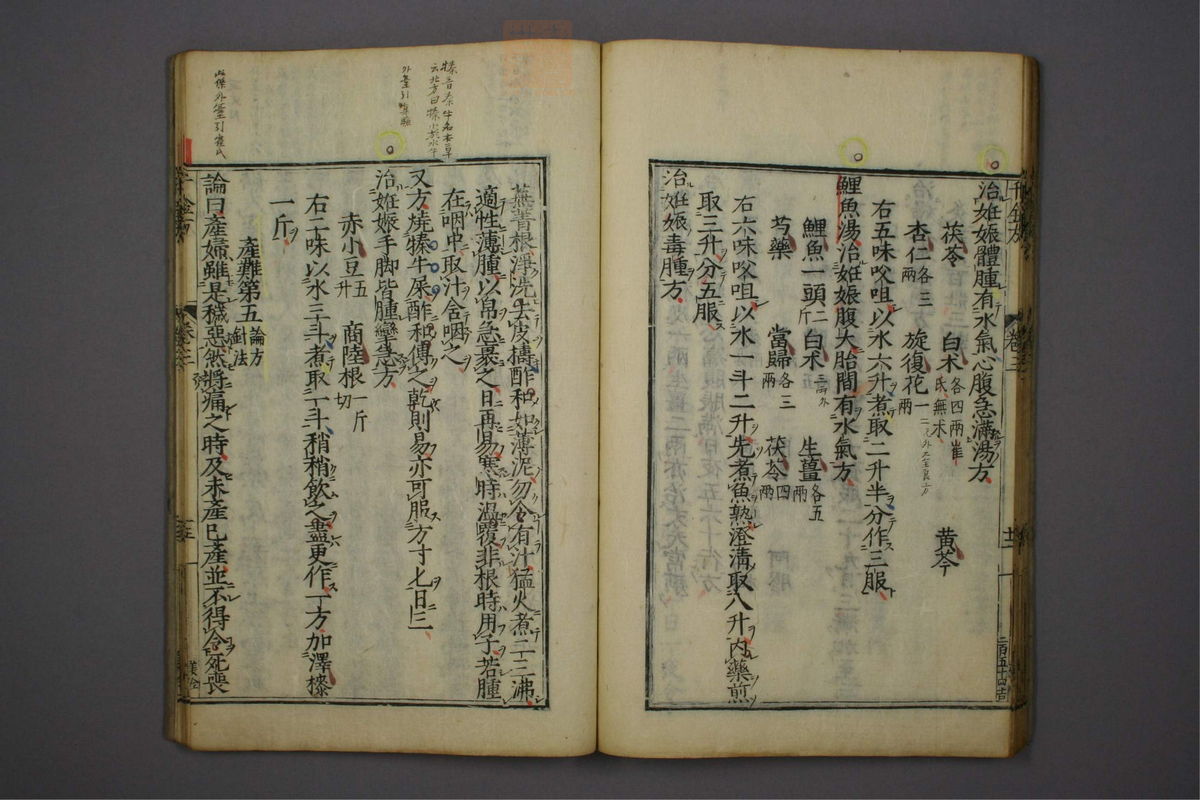 千金方
卷三
治姙娠體腫有水氣心腹急滿湯方
茯苓 白术各四兩崔氏無术 黄芩
杏仁各三兩 旋復花一兩
右五味㕮咀以水六升煮取二升半分作三服
鯉魚湯治姙娠腹大胎間有水氣方
鯉魚一頭二斤 白术 生薑各五兩
芍藥 當歸各三兩 茯苓四兩
右六味㕮咀以水一斗二升先煮魚熟澄清取八升内藥煎
取三升分五服
治姙娠毒腫方
蕪菁根淨洗去皮擣酢和如薄泥勿令有汁猛火煮二三沸
適性薄腫以帛急裹之日再易寒時溫覆非根時用子若腫
在咽中取汁含咽之
又方燒㹎牛屎酢和傅之乾則易亦可服方寸匕日三
治姙娠手脚皆腫攣急方
赤小豆五升 商陸根一斤切
右二味以水三斗煮取一斗稍稍飲之盡更作一方加澤㯶
一斤
產難第五論方針法
論曰產婦雖是穢惡然將痛之時及未產已產並不得令死喪
外臺引